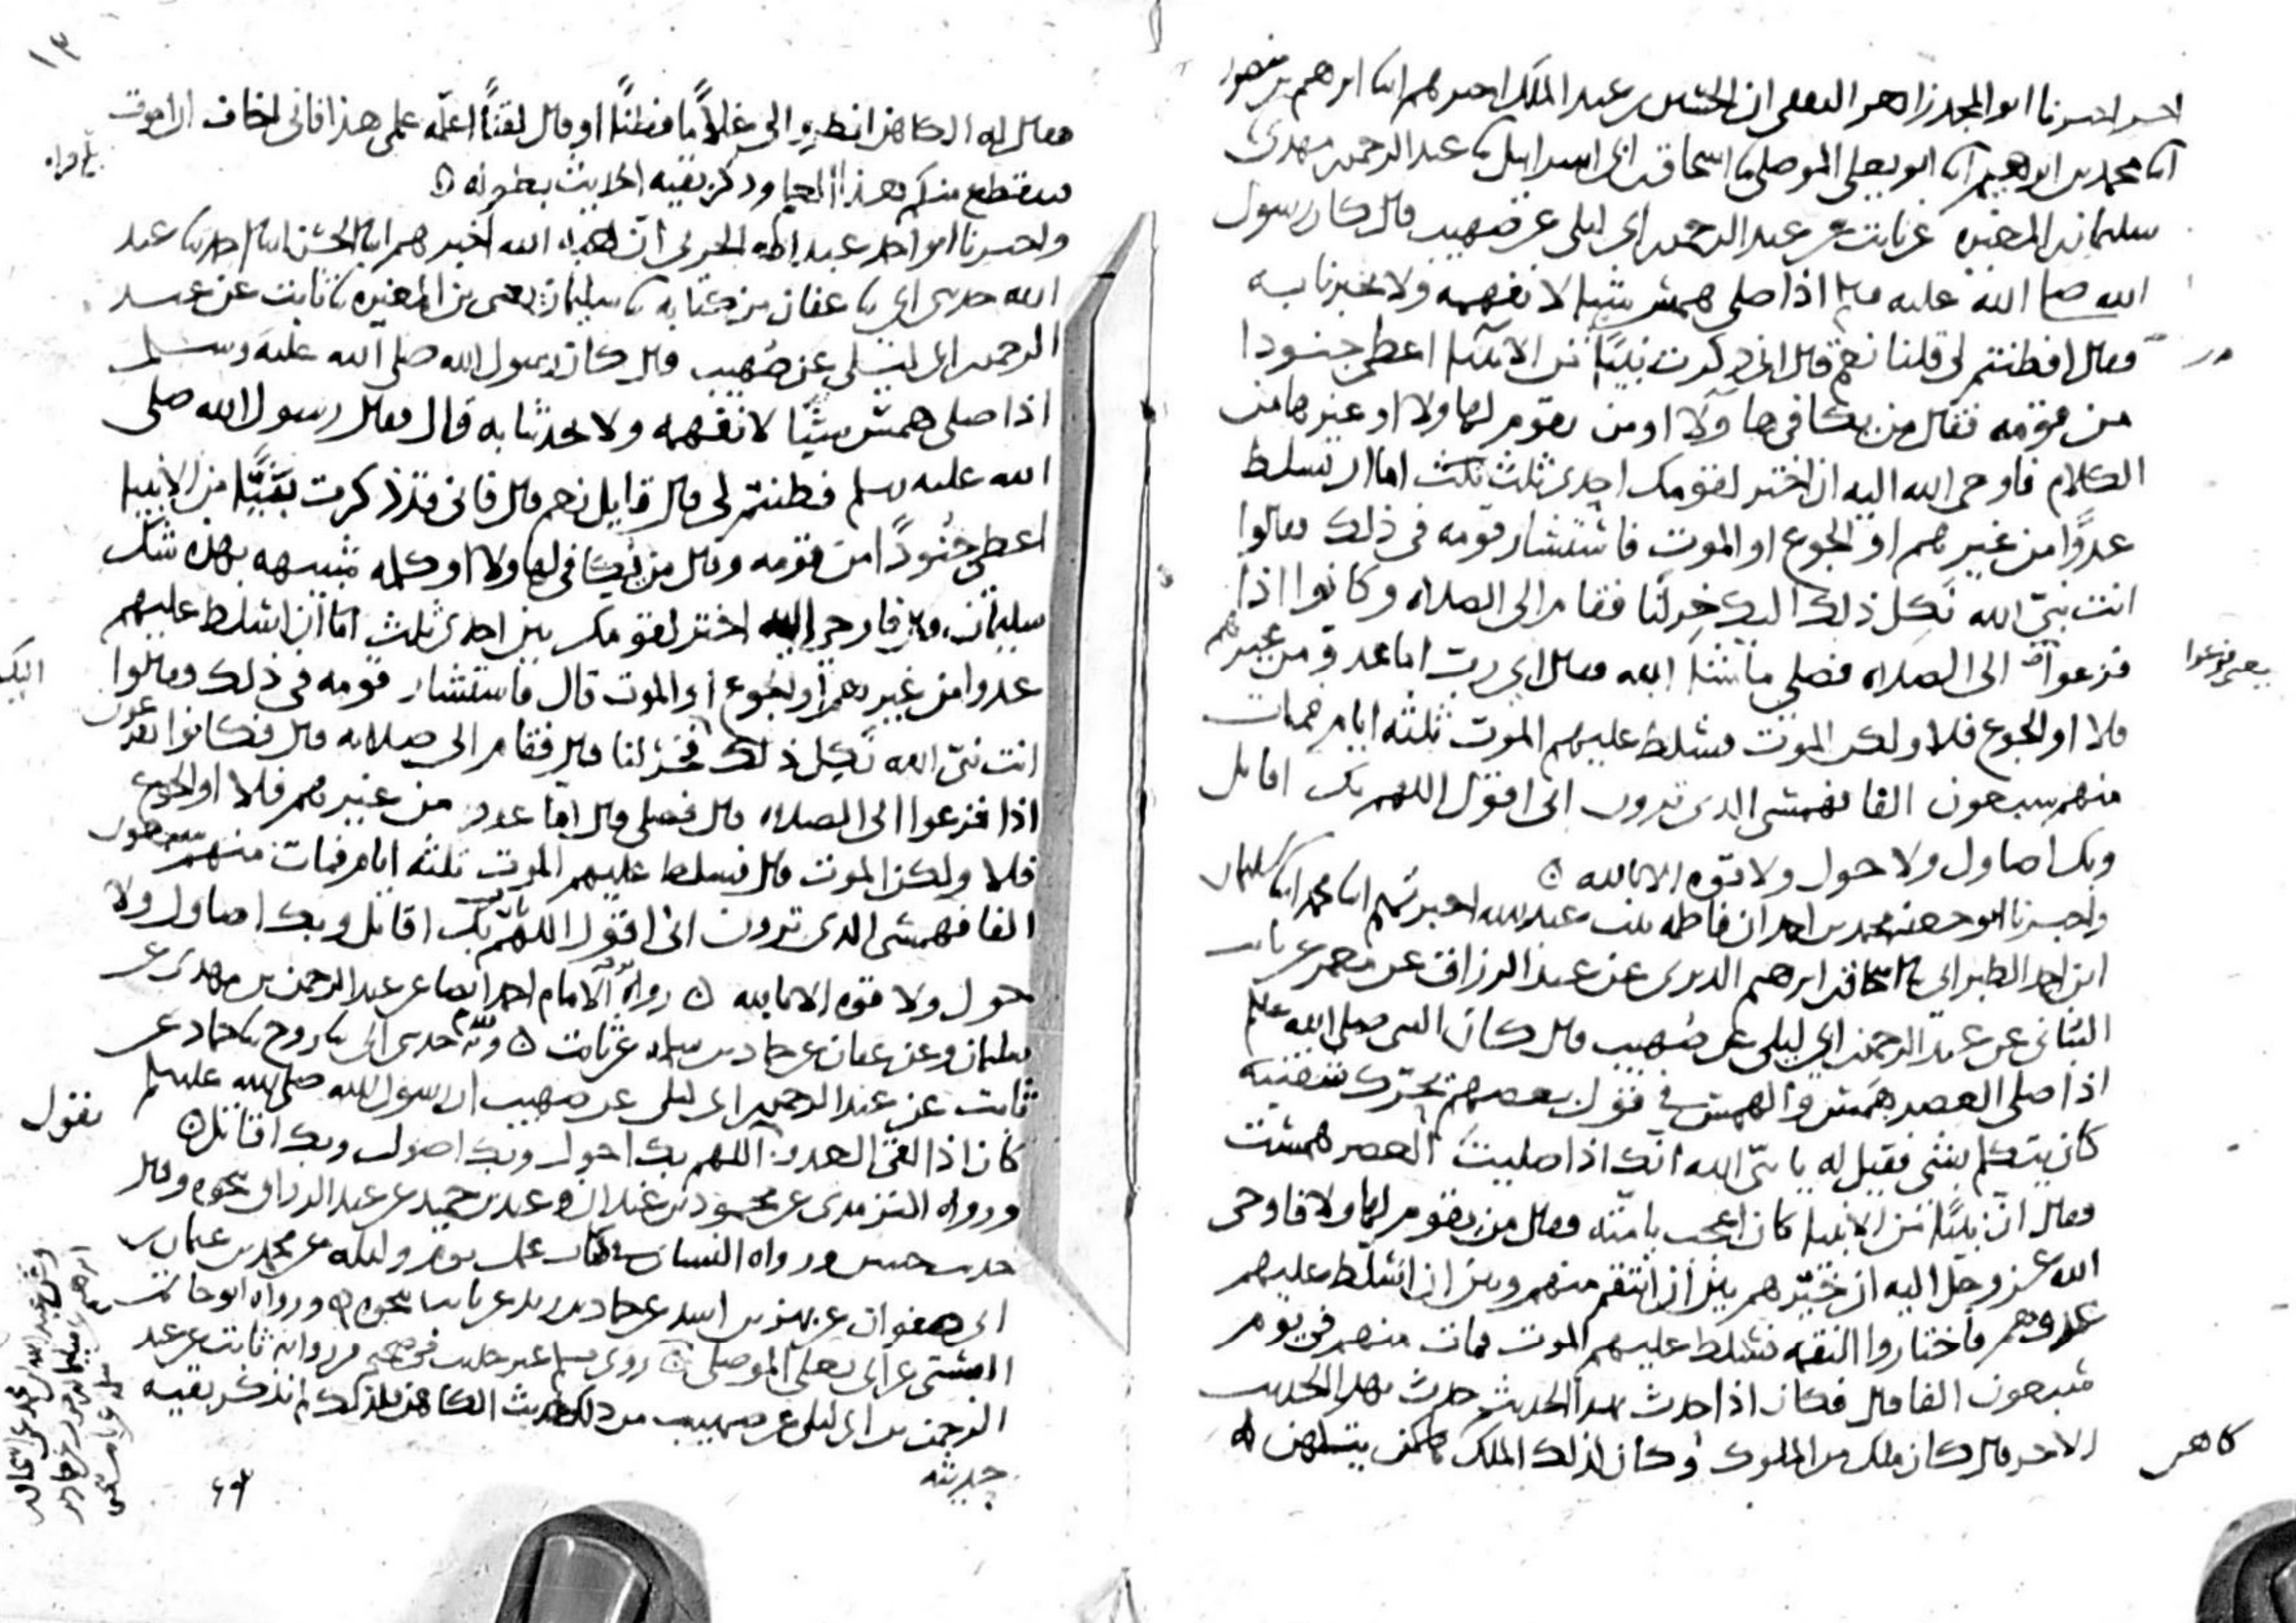 اخر اخبرنا ابو المجد زاهر الثقفي ان الحسين بن عبد الملك اخبرهم ابنا ابرهيم بن منصور
انا محمد بن ابرهيم انا ابو يعلى الموصلي نا اسحاق بن ابي اسرايل نا عبد الرحمن بن مهدي نا
سليمان بن المغيرة عن ثابت عن عبد الرحمن بن ابي ليلى عن صهيب قال كان رسول
الله صلى الله عليه وسلم اذا صلى همس شيئا لا نفهمه ولا يخبرنا به
فقال افطنتم لي قلنا نعم قال اني ذكرت نبيا من الانبياء اعطي جنودا
من قومه فقال من يكافي هاولاء او من يقوم لهاولاء او غيرها من
الكلام فاوحى الله اليه ان اختر لقومك احدى ثلث اما ان نسلط
عدوا من غيرهم او الجوع او الموت فاستشار قومه في ذلك فقالوا
انت نبي الله نكل ذلك اليك خر لنا فقام الى الصلاه وكانوا اذا
فزعوا الى الصلاه فصلى ما شاء الله فقال اي رب اما عدو من غيرهم
يعني فزعوا
فلا او الجوع فلا ولكن الموت فسلط عليهم الموت ثلثه ايام فمات
منهم سبعون الفا فهمسي الذي ترون اني اقول اللهم بك اقاتل
وبك اصاول ولا حول ولا قوه الا بالله
واخبرنا ابو جعفر محمد بن احمد ان فاطمه بنت عبد الله اخبرتهم ابنا محمد ابنا سليمان
ابن احمد الطبراني نا اسحاق بن ابرهيم الدبري عن عبد الرزاق عن معمر عن ثابت
البناني عن عبد الرحمن بن ابي ليلى عن صهيب قال كان النبي صلى الله عليه وسلم
اذا صلى العصر همس والهمس في قول بعضهم تحرك شفتيه
كانه يتكلم بشي فقيل له يا نبي الله انك اذا صليت العصر همست
فقال ان نبيا من الانبياء كان اعجب بامته فقال من يقوم لهاولاء فاوحى
الله عز وجل اليه ان خيرهم بين ان انتقم منهم وبين ان اسلط عليهم
عدوهم فاختاروا النقمه فسلط عليهم الموت فمات منهم في يوم
سبعون الفا قال فكان اذا حدث بهذا الحديث حدث بهذا الحديث
الاخر قال كان ملك من الملوك وكان لذلك الملك كاهن يتكهن له
كاهن
١٣
فقال له الكاهن انظروا لي غلاما فطنا او قال لقنا اعلمه علمي هذا فاني اخاف ان اموت
فينقطع منكم هذا العلم وذكر بقيه الحديث بطوله
واخبرنا ابو احمد عبد الله الحربي ان هبه الله اخبرهم ابنا الحسن ابنا احمد نا عبد
الله حدثني ابي نا عفان من كتابه نا سليمان يعني بن المغيره نا ثابت عن عبد
الرحمن بن ابي ليلى عن صهيب قال كان رسول الله صلى الله عليه وسلم
اذا صلى همس شيئا لا نفهمه ولا يحدثنا به قال فقال رسول الله صلى
الله عليه وسلم فطنتم لي قال قايل نعم قال فاني قد ذكرت نبيا من الانبياء
اعطي جنودا من قومه وقال من يكافي لهاولاء او كلمه شبيهه بهذه شك
سليمان قال فاوحى الله اليه اختر لقومك بين احدى ثلث اما ان اسلط عليهم
عدوا من غيرهم او الجوع او الموت قال فاستشار قومه في ذلك وقالوا
انت نبي الله نكل ذلك اليك فخر لنا قال فقام الى صلاته قال فكانوا يفزعون
اليك
اذا فزعوا الى الصلاه قال فصلى قال اما عدو من غيرهم فلا او الجوع
فلا ولكن الموت قال فسلط عليهم الموت ثلثه ايام فمات منهم سبعون
الفا فهمسي الذي ترون اني اقول اللهم يا رب بك اقاتل وبك اصاول ولا
حول ولا قوه الا بالله رواه الامام احمد ايضا عن عبد الرحمن بن مهدي عن
سليمان وعن عفان عن حماد بن سلمه عن ثابت وبه حدثني ابي نا روح نا حماد عن
ثابت عن عبد الرحمن بن ابي ليلى عن صهيب ان رسول الله صلى الله عليه وسلم
كان اذا لقي العدو اللهم بك احول وبك اصول وبك اقاتل
يقول
ورواه الترمذي عن محمود بن غيلان وعبد بن حميد عن عبد الرزاق نحوه وقال
حديث حسن ورواه النسائي في كتاب عمل يوم وليله عن محمد بن عثمان بن
ابي صفوان عن بهز بن اسد عن حماد بن زيد عن ثابت نحوه ورواه ابو حاتم
البستي عن ابي يعلى الموصلي روى مسلم عن هداب في صحيحه من روايه ثابت عن عبد
الرحمن بن ابي ليلى عن صهيب من ذلك حديث الكاهن فلذلك لم نذكر بقيه
حديثه